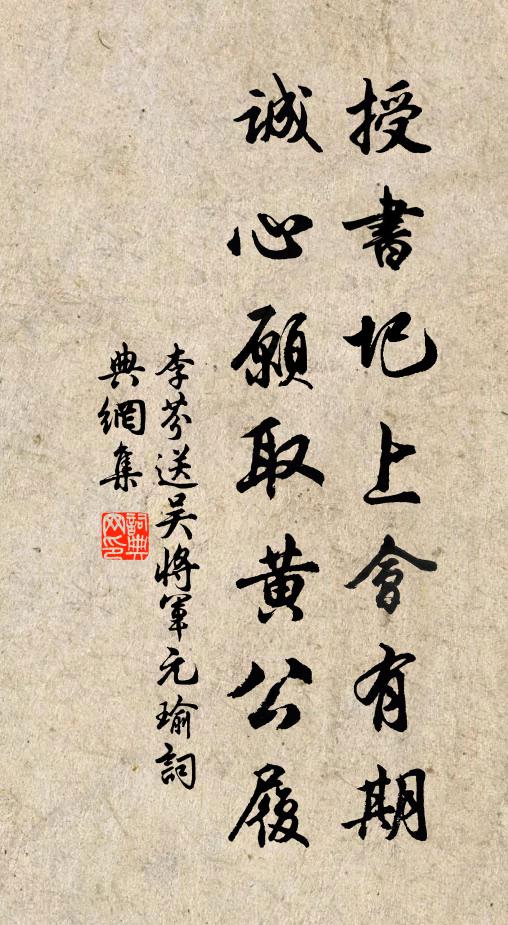 授書圯上會有期
誠心願取黃公履
李芩送吳將軍元瑜詞
典網集
詞典网印